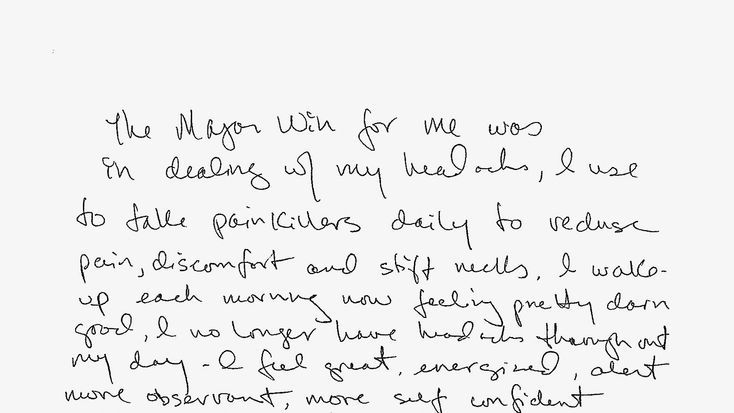 The Major Win for me was
in dealing w/ my headachs, I use
to take painkillers daily to reduse
pain, discomfort and stiff necks. I wake-
up each morning now feeling pretty darn
good, I no longer have headachs throughout
my day - I feel great, energized, alert
more observant, more self confident